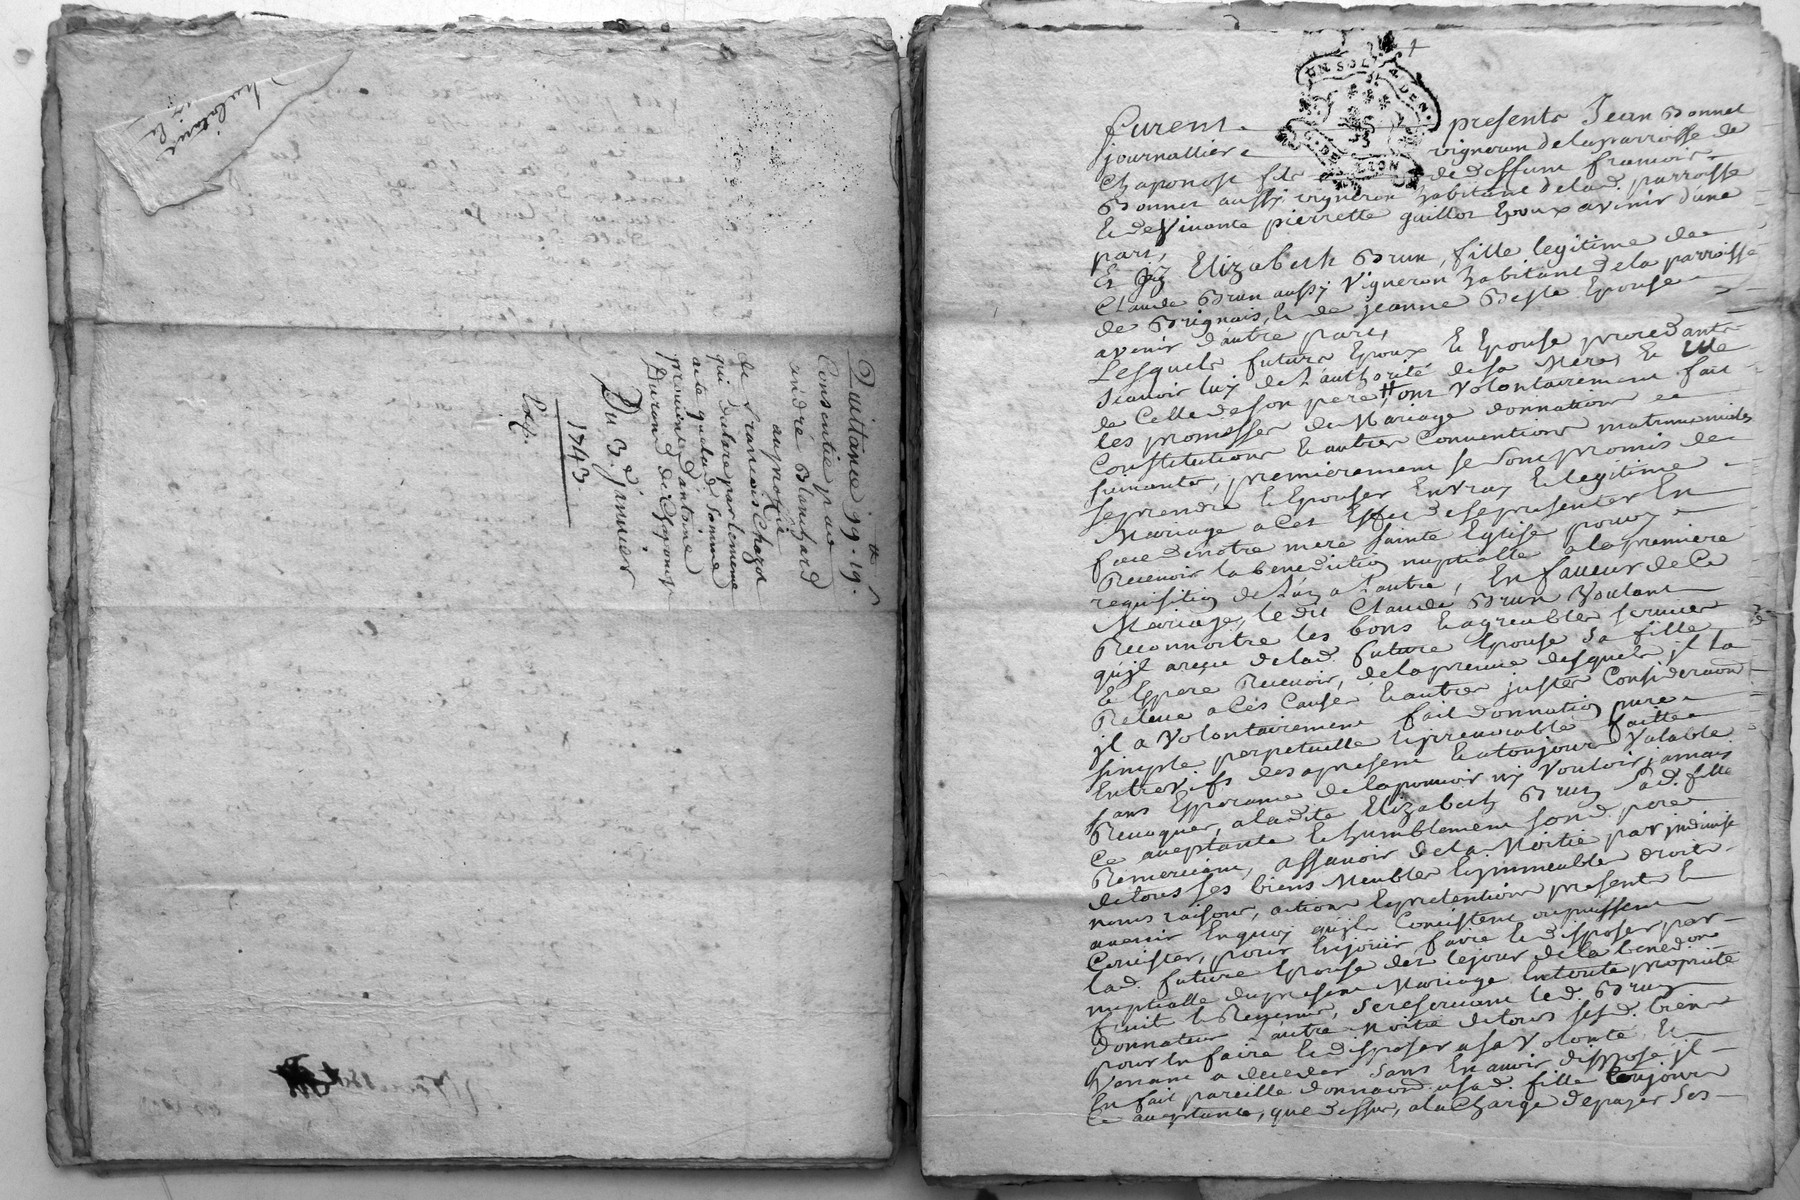 Quittance 99 ₶ 19 s
Consentie par
andré Blanchard
au proffit
de francois Chazot
qui declare par le meme
acte que lad. somme
provient d'antoine
Durand de Chaponost
Du 3e. Janvier
1743.
Exp.
UN SOL 4 DEN.
DE LYON
furent presents Jean Bonnet
journallier vigneron de la parroisse de
Chaponost fils de deffunt francois
Bonnet aussy vigneron habitant de lad. parroisse
& de vivante pierrette guillot Epoux avenir d'une
part,
Et Elizabeth Brun, fille legitime de
Claude Brun aussy Vigneron habitant de la parroisse
de Brignais, & de jeanne Beste Epouse
avenir d'autre part,
Lesquels futurs Epoux & Epouse procedants
scavoir luy de L'authorité de sa Mere, & elle
de Celle de son pere # ont Volontairement fait
les promesses de Mariage donnations
Constitutions & autres Conventions matrimoniales
suivantes, premierement se sont promis de
se prendre & Epouser En vray & legitime
Mariage a Cet Effet de se presenter En
face de notre mere sainte Eglise pour y
Recevoir la benediction nuptialle a la premiere
requisition de L'un a L'autre, En faveur de Ce
Mariage, le dit Claude Brun Voulant
Reconnoitre les bons & agreables services
qu'jl a reçu de lad. future Epouse sa fille
& Espere Recevoir, de la preuve desquels jl La
Releve a Ces Causes & autres justes Considerations
jl a Volontairement fait donnation pure
simple perpetuelle & jrrevocable faitte
Entre Vifs des a present & a toujours Valable
sans Esperance de la pouvoir ny Vouloir jamais
Revoquer, a ladite Elizabeth Brun Sad. fille
Ce aceptante & humblement sond. pere
Remerciant, assavoir de la Moitié par jndivise
de tous ses biens Meubles & jmmeubles droits
noms raisons, actions & pretentions presents &
avenir En quoy qu'jls Consistent ou puissent
Consister, pour En jouir faire & disposer par
lad. future Epouse des le jour de la bened.on
nuptialle du present Mariage En toute proprieté
fruits & Revenus, se reservant led. Brun
Donnateur L'autre Moitié de tous sesd. biens
pour En faire & disposer a sa Volonté Et
Venant a deceder sans En avoir disposé jl
En fait pareille donnaon. a sad. fille toujours
Ce aceptante, que dessus, a la Charge de payer ses